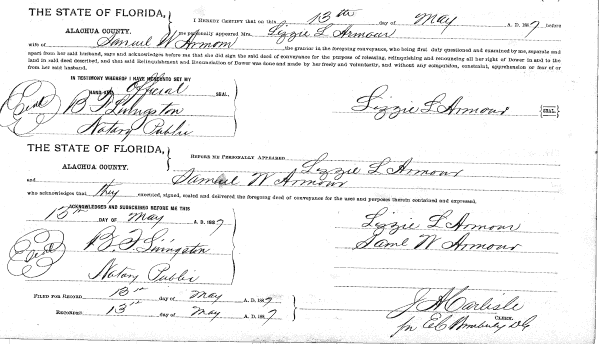 THE STATE OF FLORIDA,
ALACHUA COUNTY.
I HEREBY CERTIFY that on this 13th day of May A. D. 1887 before
me personally appeared Mrs. Lizzie L Armour
wife of Samuel W Armour the grantor in the foregoing conveyance, who being first duty questioned and examined by me, separate and
apart from her said husband, says and acknowledges before me that she did sign the said deed of conveyance for the purpose of releasing, relinquishing and renouncing all her right of Dower in and to the
land in said deed described, and that said Relinquishment and Renunciation of Dower was done and made by her freely and voluntarily, and without any compulsion, constraint, apprehension or fear of or
from her said husband.
IN TESTIMONY WHEREOF I HAVE HEREUNTO SET MY
HAND AND Official SEAL.
Seal
B F Livingston
Notary Public
Lizzie L Armour SEAL
THE STATE OF FLORIDA,
ALACHUA COUNTY.
BEFORE ME PERSONALLY APPEARED Lizzie L Armour
and Samuel W Armour
who acknowledges that they executed, signed, sealed and delivered the foregoing deed of conveyance for the uses and purposes therein contained and expressed.
ACKNOWLEDGED AND SUBSCRIBED BEFORE ME THIS
13th DAY OF May A. D. 1887
Seal
B F Livingston
Notary Public
Lizzie L Armour
Saml W Armour
FILED FOR RECORD 13th day of May A. D. 1887
RECORDED 13th day of May A. D. 1887
J A Carlisle
CLERK.
per E C